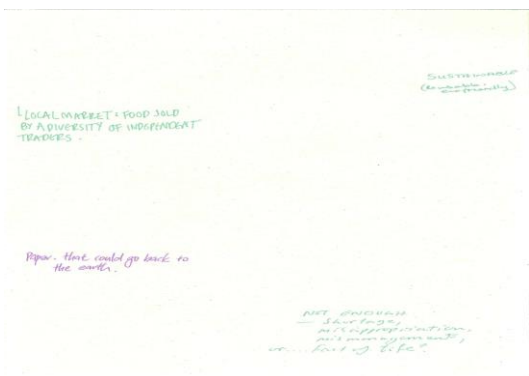 SUSTAINABLE
LOCAL MARKET + FOOD SOLD
BY A DIVERSITY OF INDEPENDENT
TRADERS.
Paper. that could go back to
the earth.
NOT ENOUGH
— Shortage,
misappropriation,
mismanagement,
or.... fact of life?